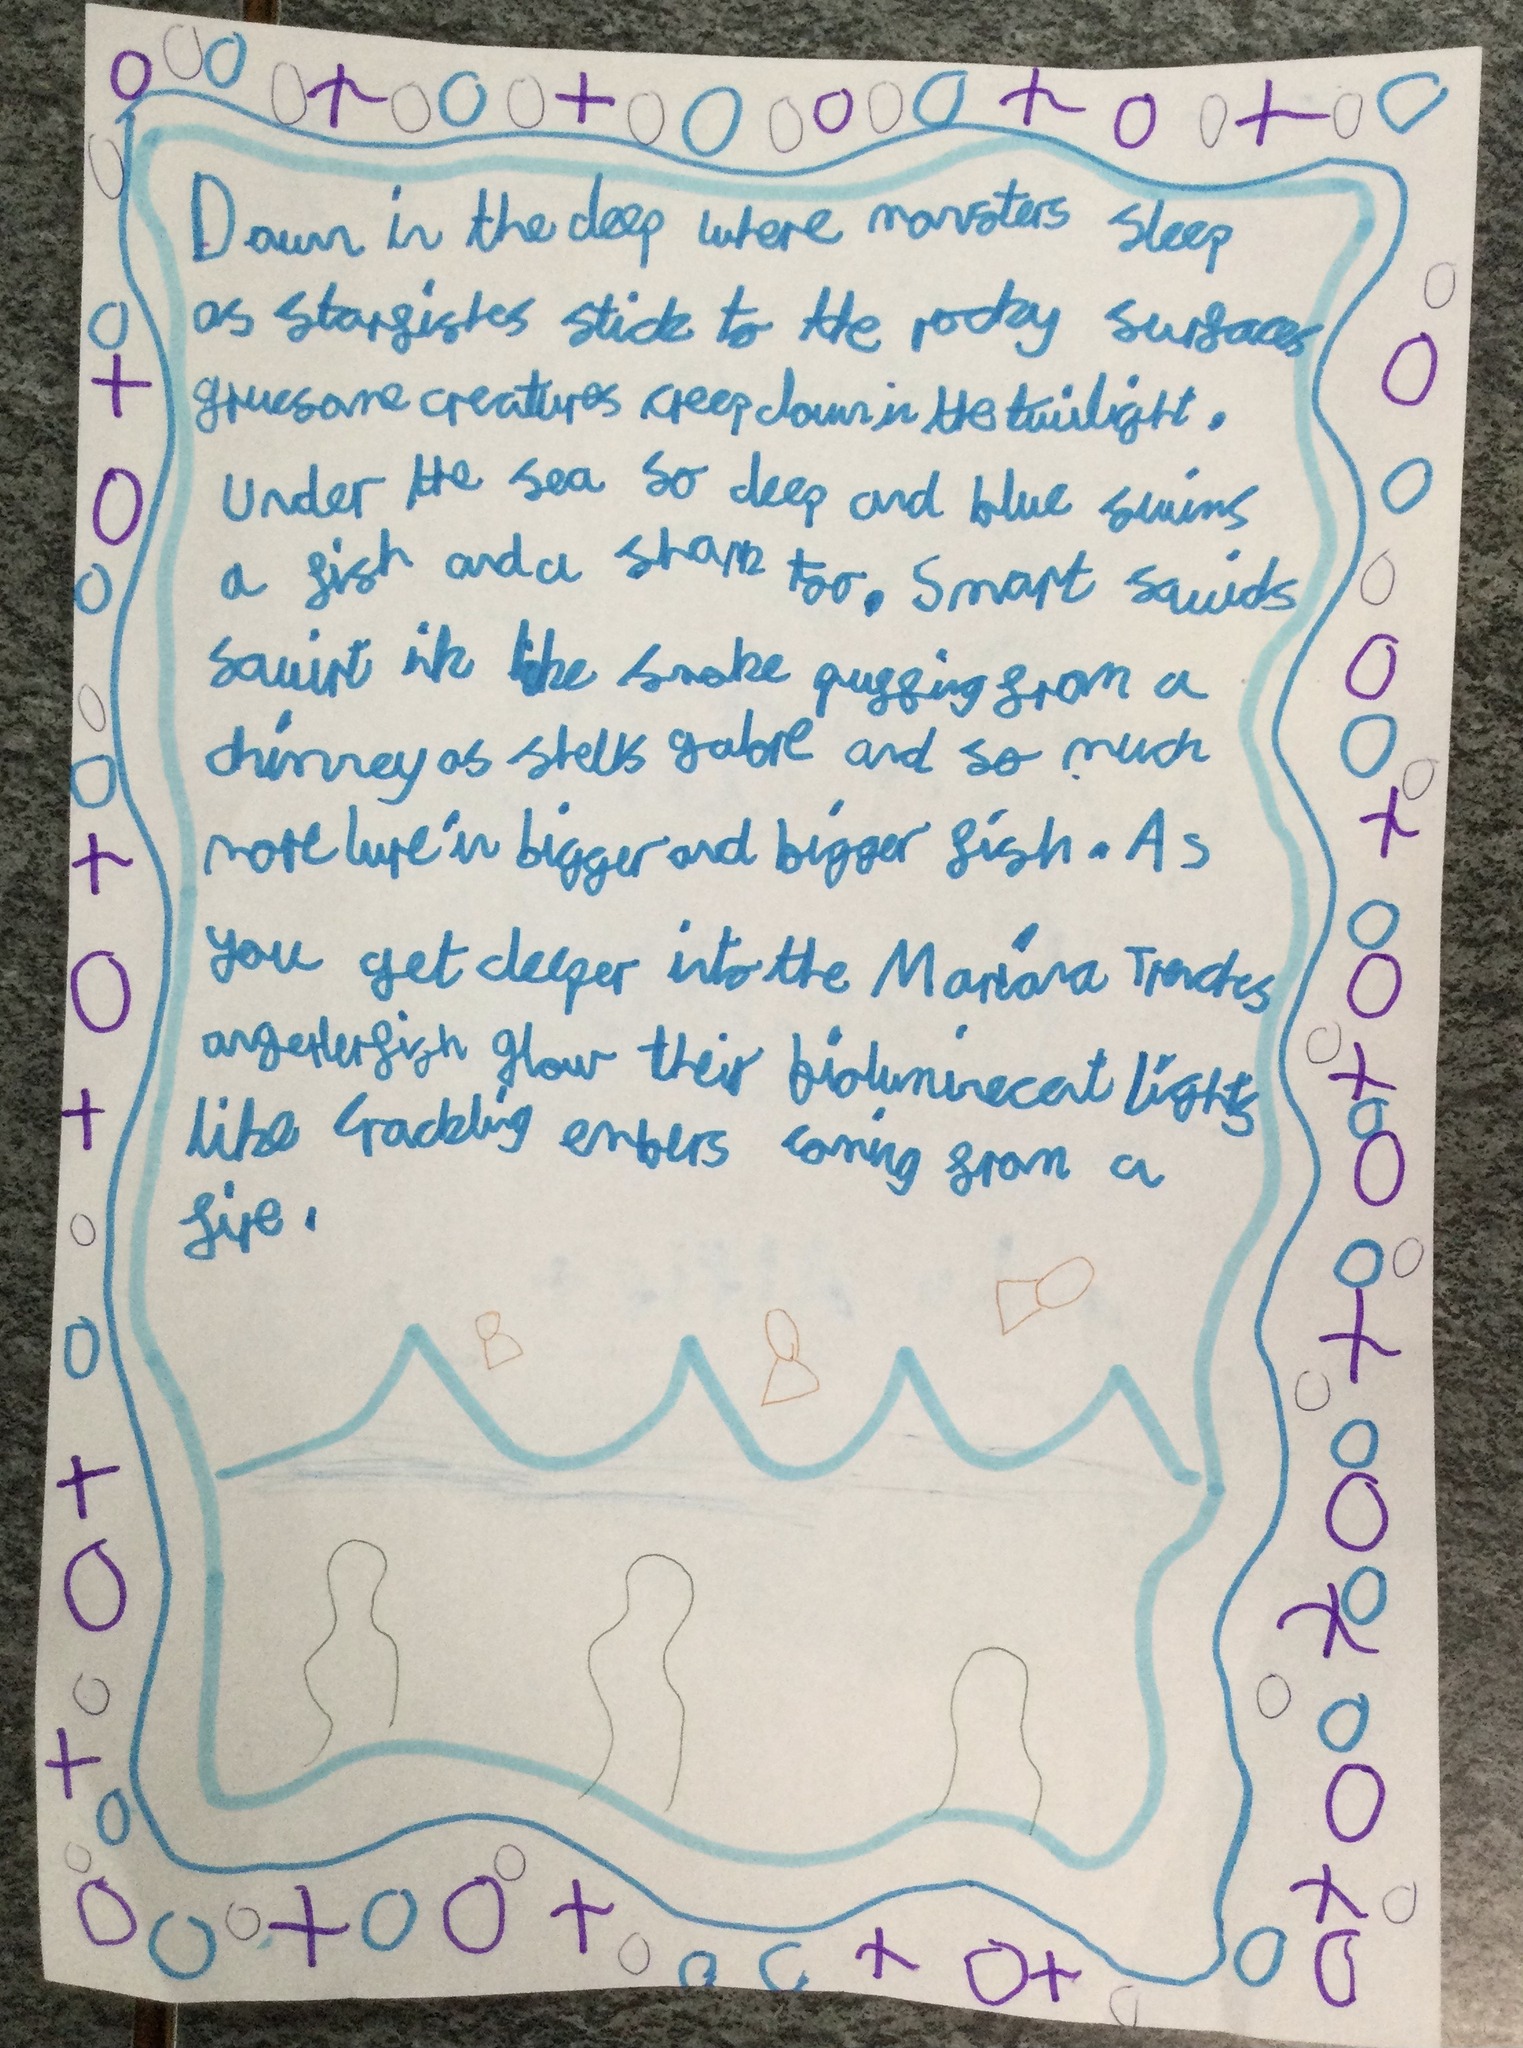 Down in the deep where monsters sleep
as starfishes stick to the rocky surfaces
gruesome creatures creep down in the twilight.
Under the sea so deep and blue swims
a fish and a shark too. Smart squids
squirt ink like smoke puffing from a
chimney as and so much
more lure in bigger and bigger fish. As
you get deeper into the Mariana Trenches
angerlerfish glow their bioluminecent lights
like crackling embers coming from a
fire.